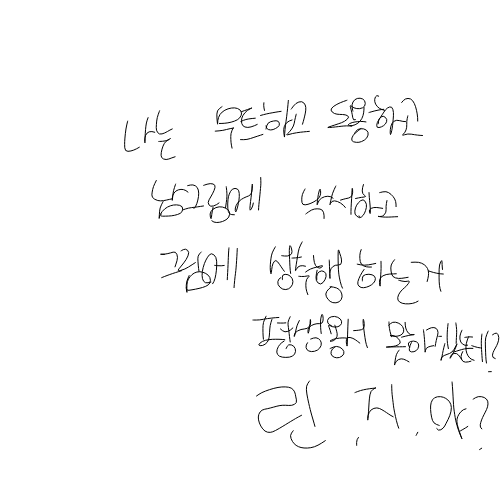 나는 무트하고 도용하고
남그림에 낙서하고
그림에 성추행 하는거
평생용서 못하겠는데?
린.지.야?